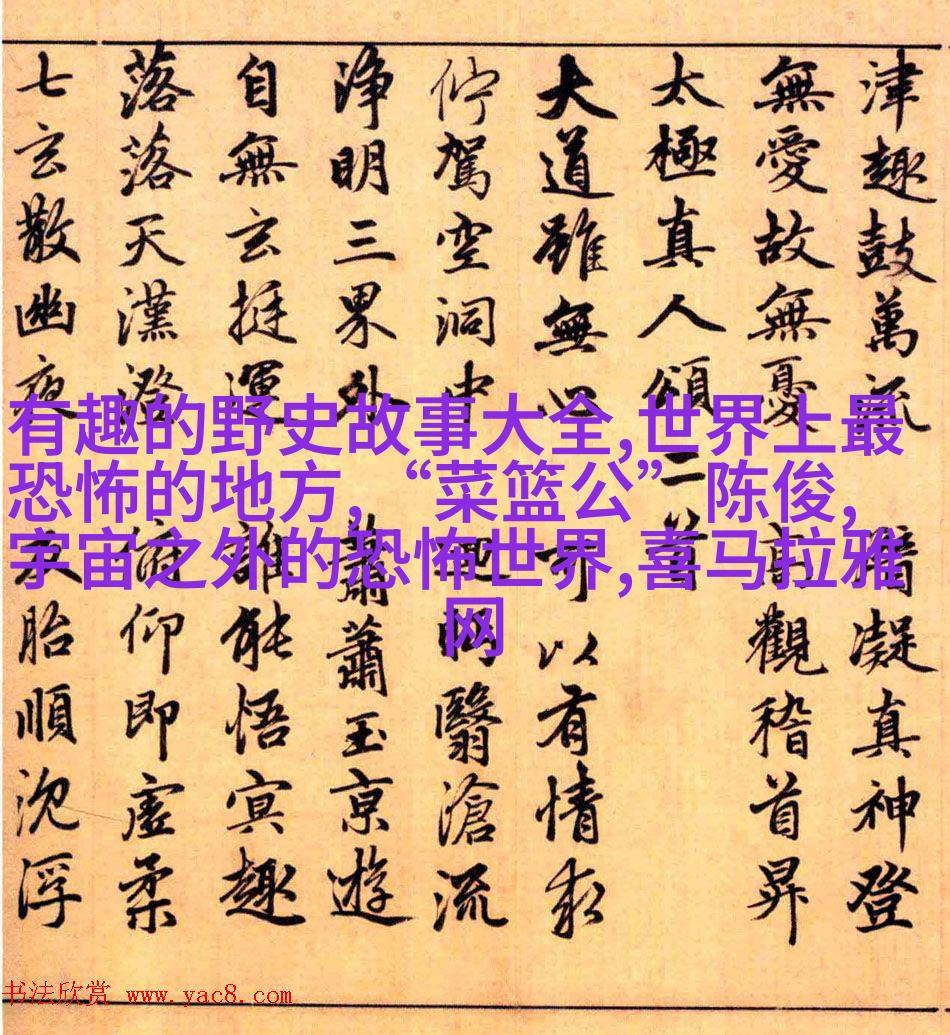 津趣鼓萬流 潛凝真神登
無愛故無憂 高觀稽首昇
太極真人頌二首
大道雖無心 可以有情求
佇駕空洞中 迴眄翳滄流
淨明三界外 蕭蕭玉京遊
自無玄挺運 誰能悟冥趣
落落天漢澄 俯仰即虛柔
七玄散幽夜 反胎順沈浮
有趣的野史故事大全,世界上最
恐怖的地方,“菜篮公” 陈俊,
宇宙之外的恐怖世界,喜马拉雅
网
书法欣赏 www.yac8.com